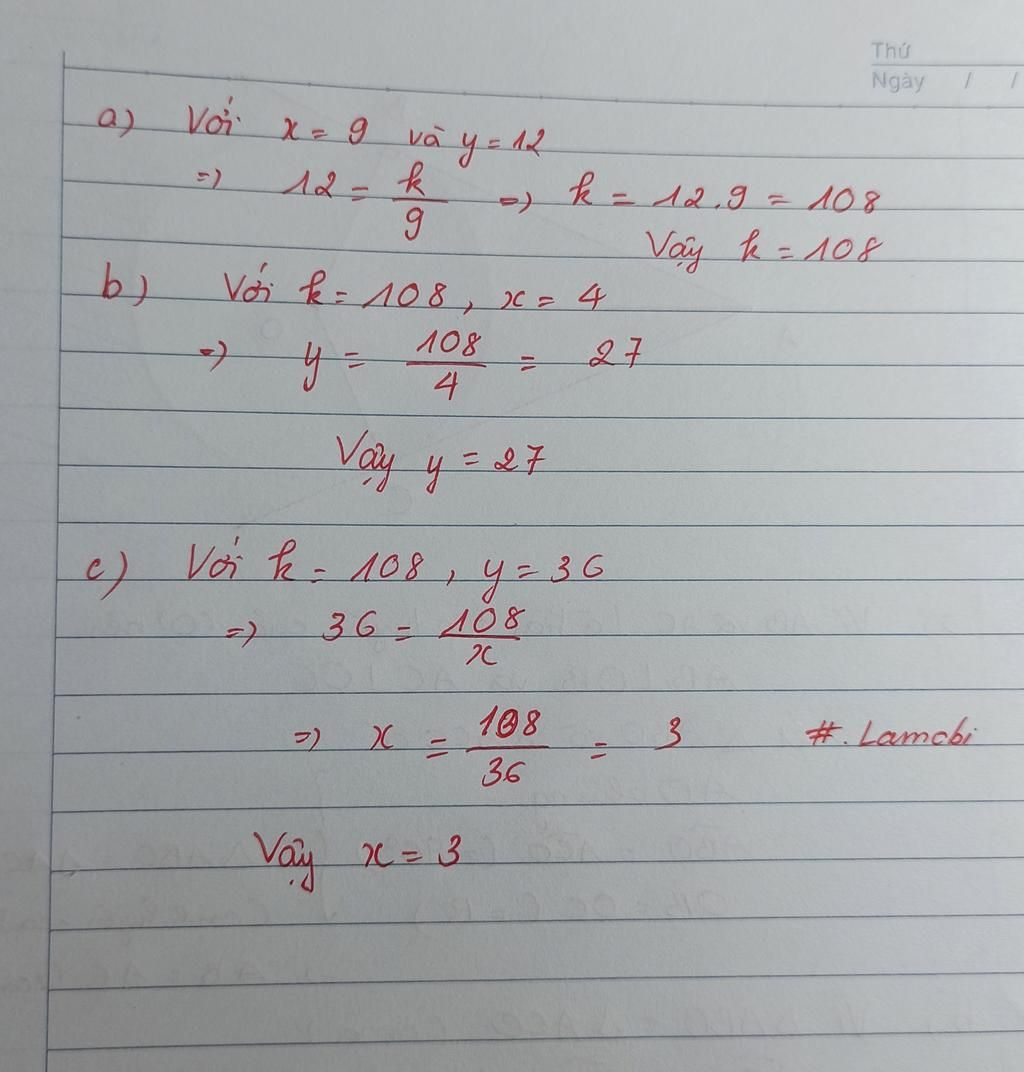 Thứ
Ngày / /
a) Với x = 9 và y = 12
=) 12 = k/9 =) k = 12.9 = 108
Vậy k = 108
b) Với k = 108, x = 4
=) y = 108/4 = 27
Vậy y = 27
c) Với k = 108, y = 36
=) 36 = 108/x
=) x = 108/36 = 3 #.Lamchi
Vậy x = 3